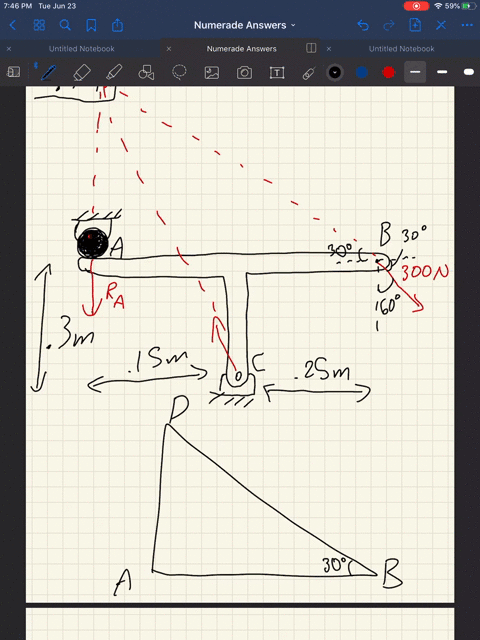 7:46 PM Tue Jun 23
59%
Numerade Answers
Untitled Notebook
Numerade Answers
Untitled Notebook
T
A
B
30°
30°
300N
60°
RA
.3m
.15m
C
.25m
D
30°
A
B